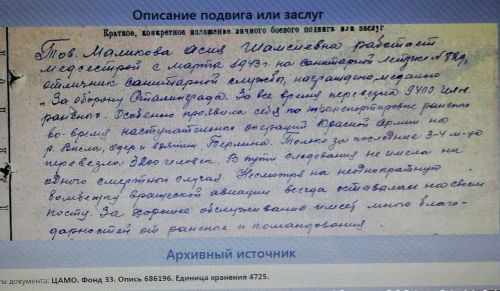 Описание подвига или заслуг
Краткое, конкретное изложение личного боевого подвига или заслуг
Тов. Маликова Асия Шамсиевна работает
медсестрой с марта 1943 г. на санитарной летучке №
отличник санитарной службы, награждена медалью
"За оборону Сталинграда. За все время перевезла 9400 челов.
раненых. Особенно проявила себя по транспортировке раненых
во-время наступательных операций Красной Армии на
р. Висла, Одер и взятии Берлина. Только за последние 3-4 м-ца
перевезла 3200 человек. В пути следования не имела ни
одного смертного случая. Несмотря на неоднократную
бомбежку вражеской авиации всегда оставалась на своем
посту. За хорошее обслуживание имеет много благо-
дарностей от раненых и командования.
Архивный источник
документа: ЦАМО. Фонд 33. Опись 686196. Единица хранения 4725.